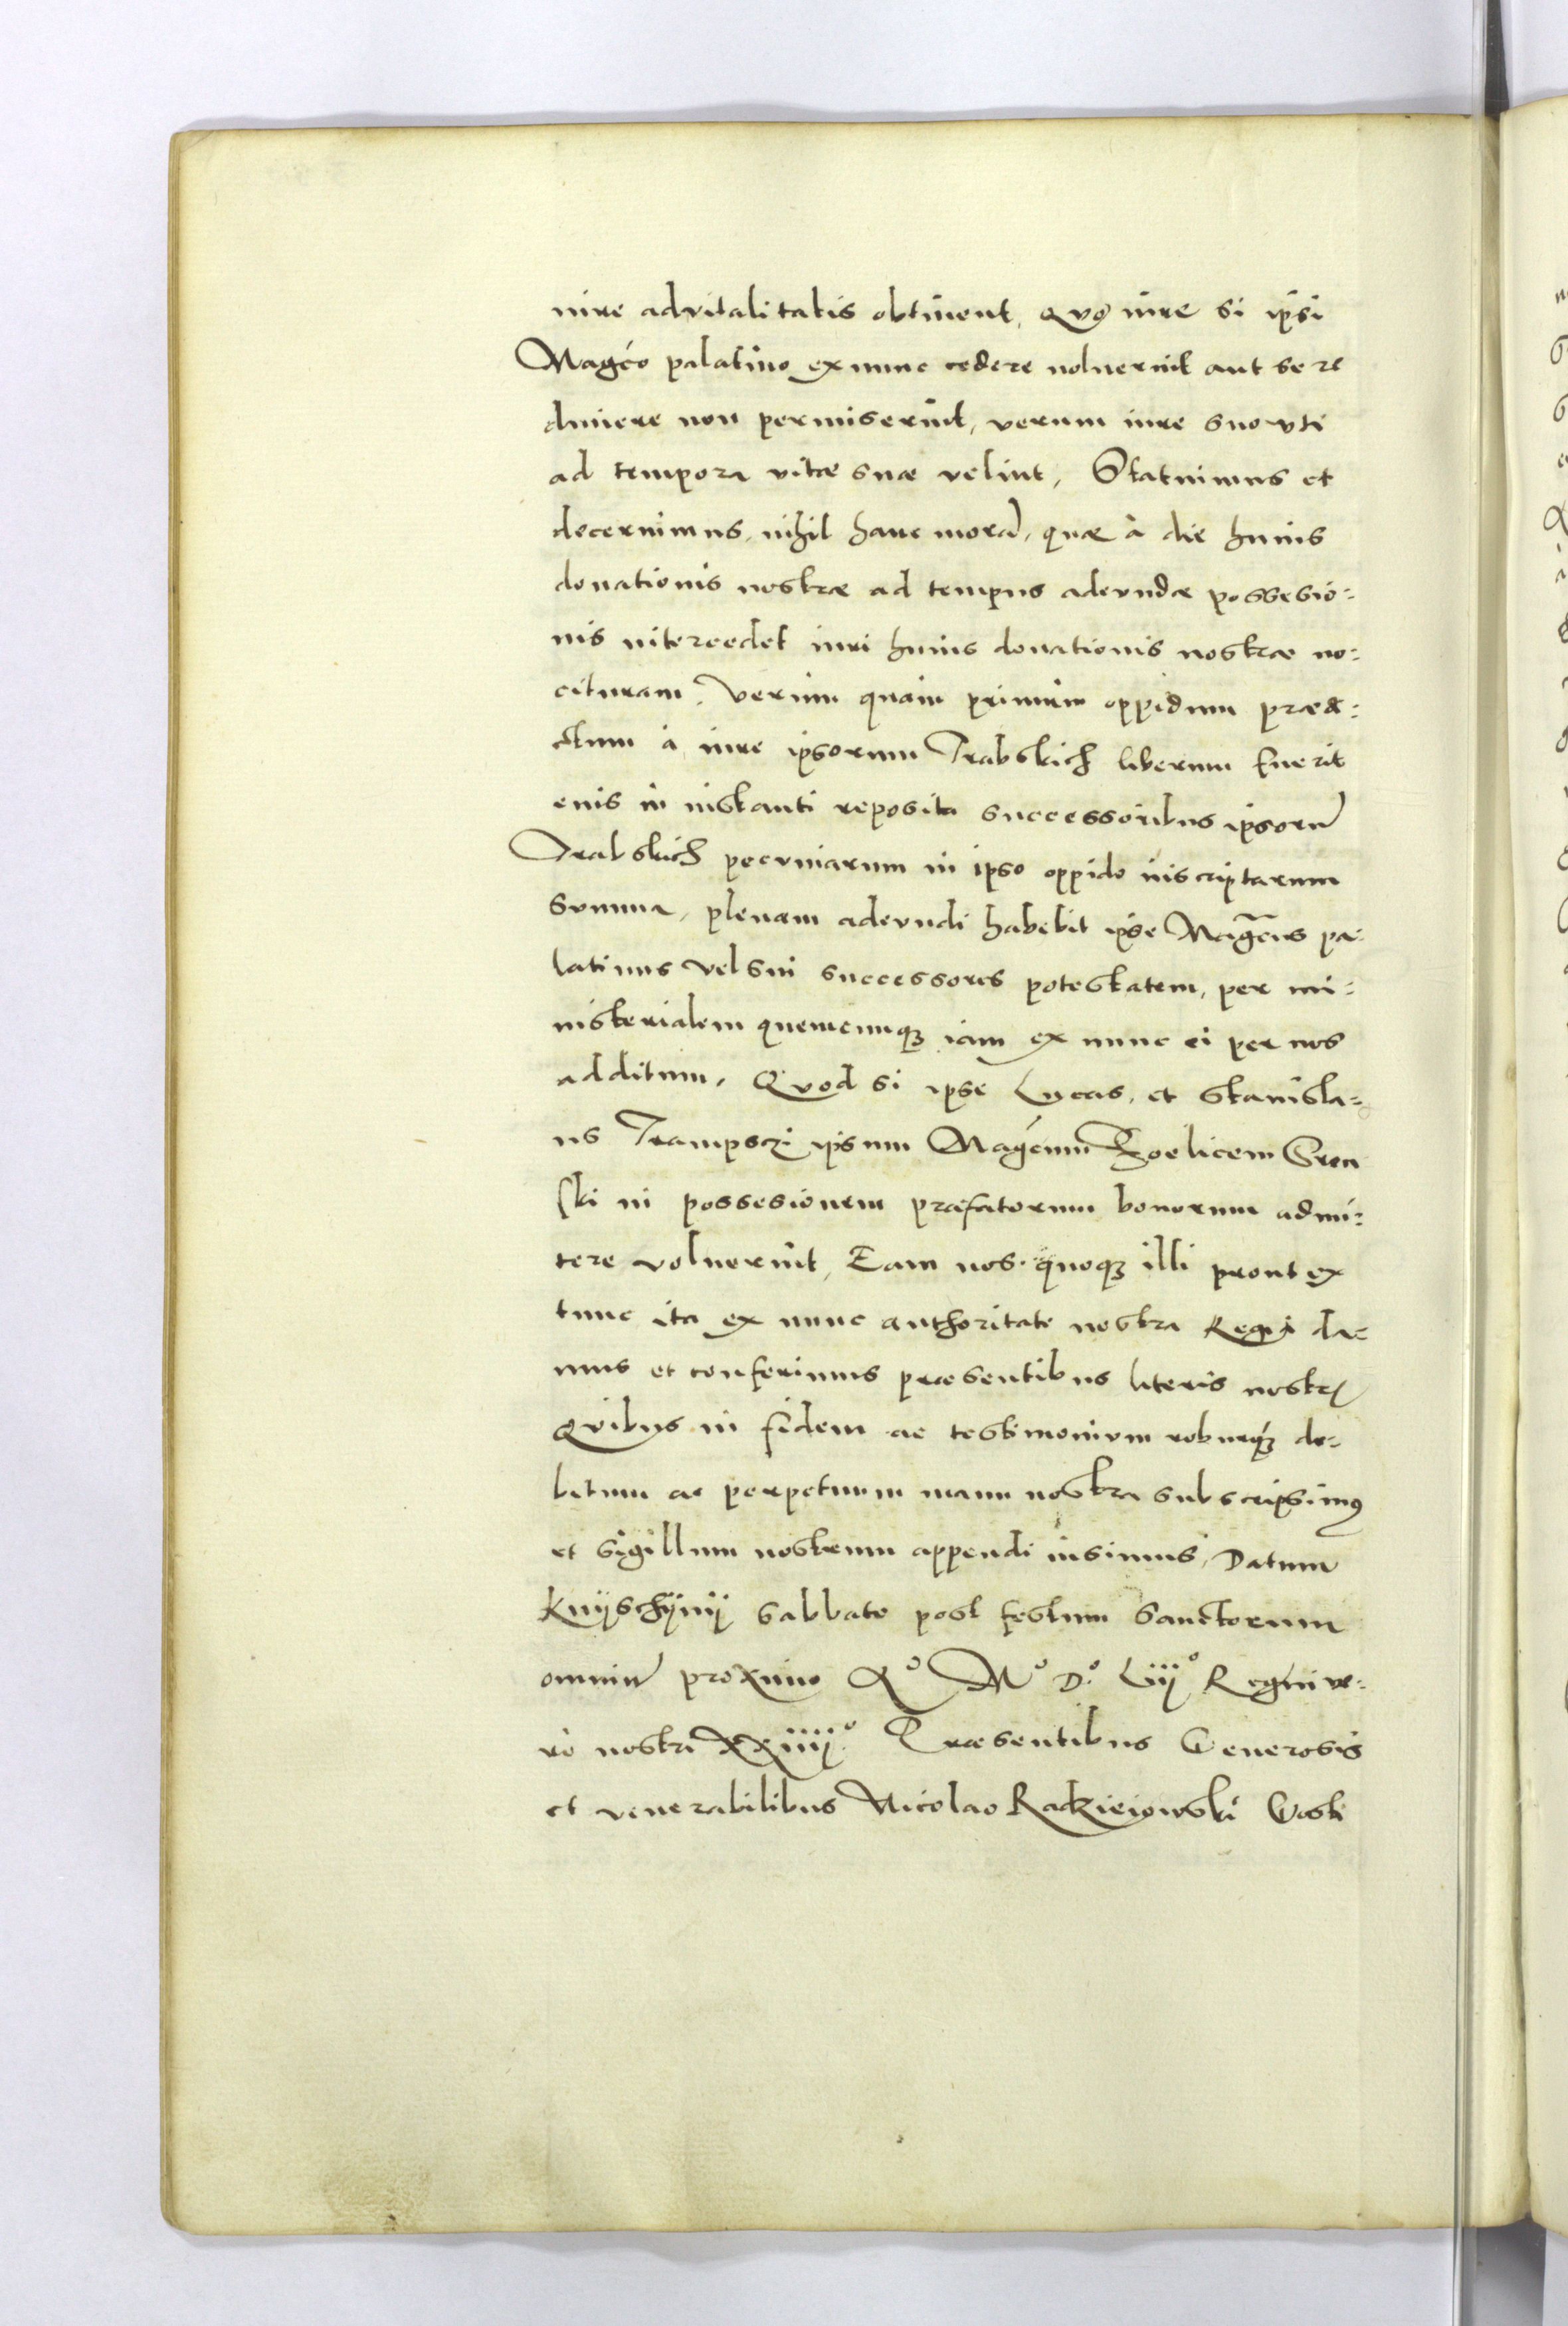 iure advitalitatis obtinent, Quo iure si ipsi
Magc̃o palatino ex nunc cedere noluerint aut se re
dimere non permiserint, verum iure suo vti
ad tempora vitæ suæ velint, Statuimus et
decernimus, nihil hanc morã, quæ à die huius
donationis nostræ ad tempus adeundæ possesio:
nis intercedet iuri huius donationis nostræ no:
cituram. Verum quam primum oppidum prædi:
ctum à iure ipsorum Trabskich liberum fuerit
eius in instanti reposita successoribus ipsorũ
Trabskich pecuniarum in ipso oppido inscriptarum
summa, plenam adeundi habebit ipse Mag̃cus pa:
latinus vel sui successores potestatem, per mi:
nisterialem quemcunqȝ iam ex nunc ei per nos
additum. Quod si ipse Lucas, et Stanisla:
us Trampsczi ipsum Magc̃um Foelicem Sren
ski in possesionem præfatorum bonorum admi:
tere voluerint, Eam nos quoqȝ illi prout ex
tunc ita ex nunc authoritate nostra Regia da:
mus et conferimus præsentibus literis nostris
Quibus in fidem ac testimonium roburqȝ de:
bitum ac perpetuum manu nostra subscripsimꝯ
et sigillum nostrum appendi iusimus, Datum
Knÿschÿnÿ sabbato post festum Sanctorum
omniũ proximo Aº Mº Dº Liijº Regni ve:
rò nostri XXiiijº Præsentibus Generosis
et venerabilibus Nicolao Radzieiowski Gosti